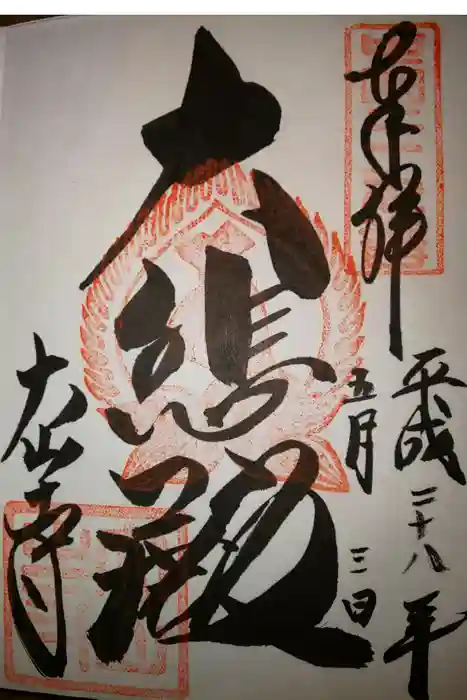 奉拝
平成二十八年
五月三日
大悲殿
大山寺